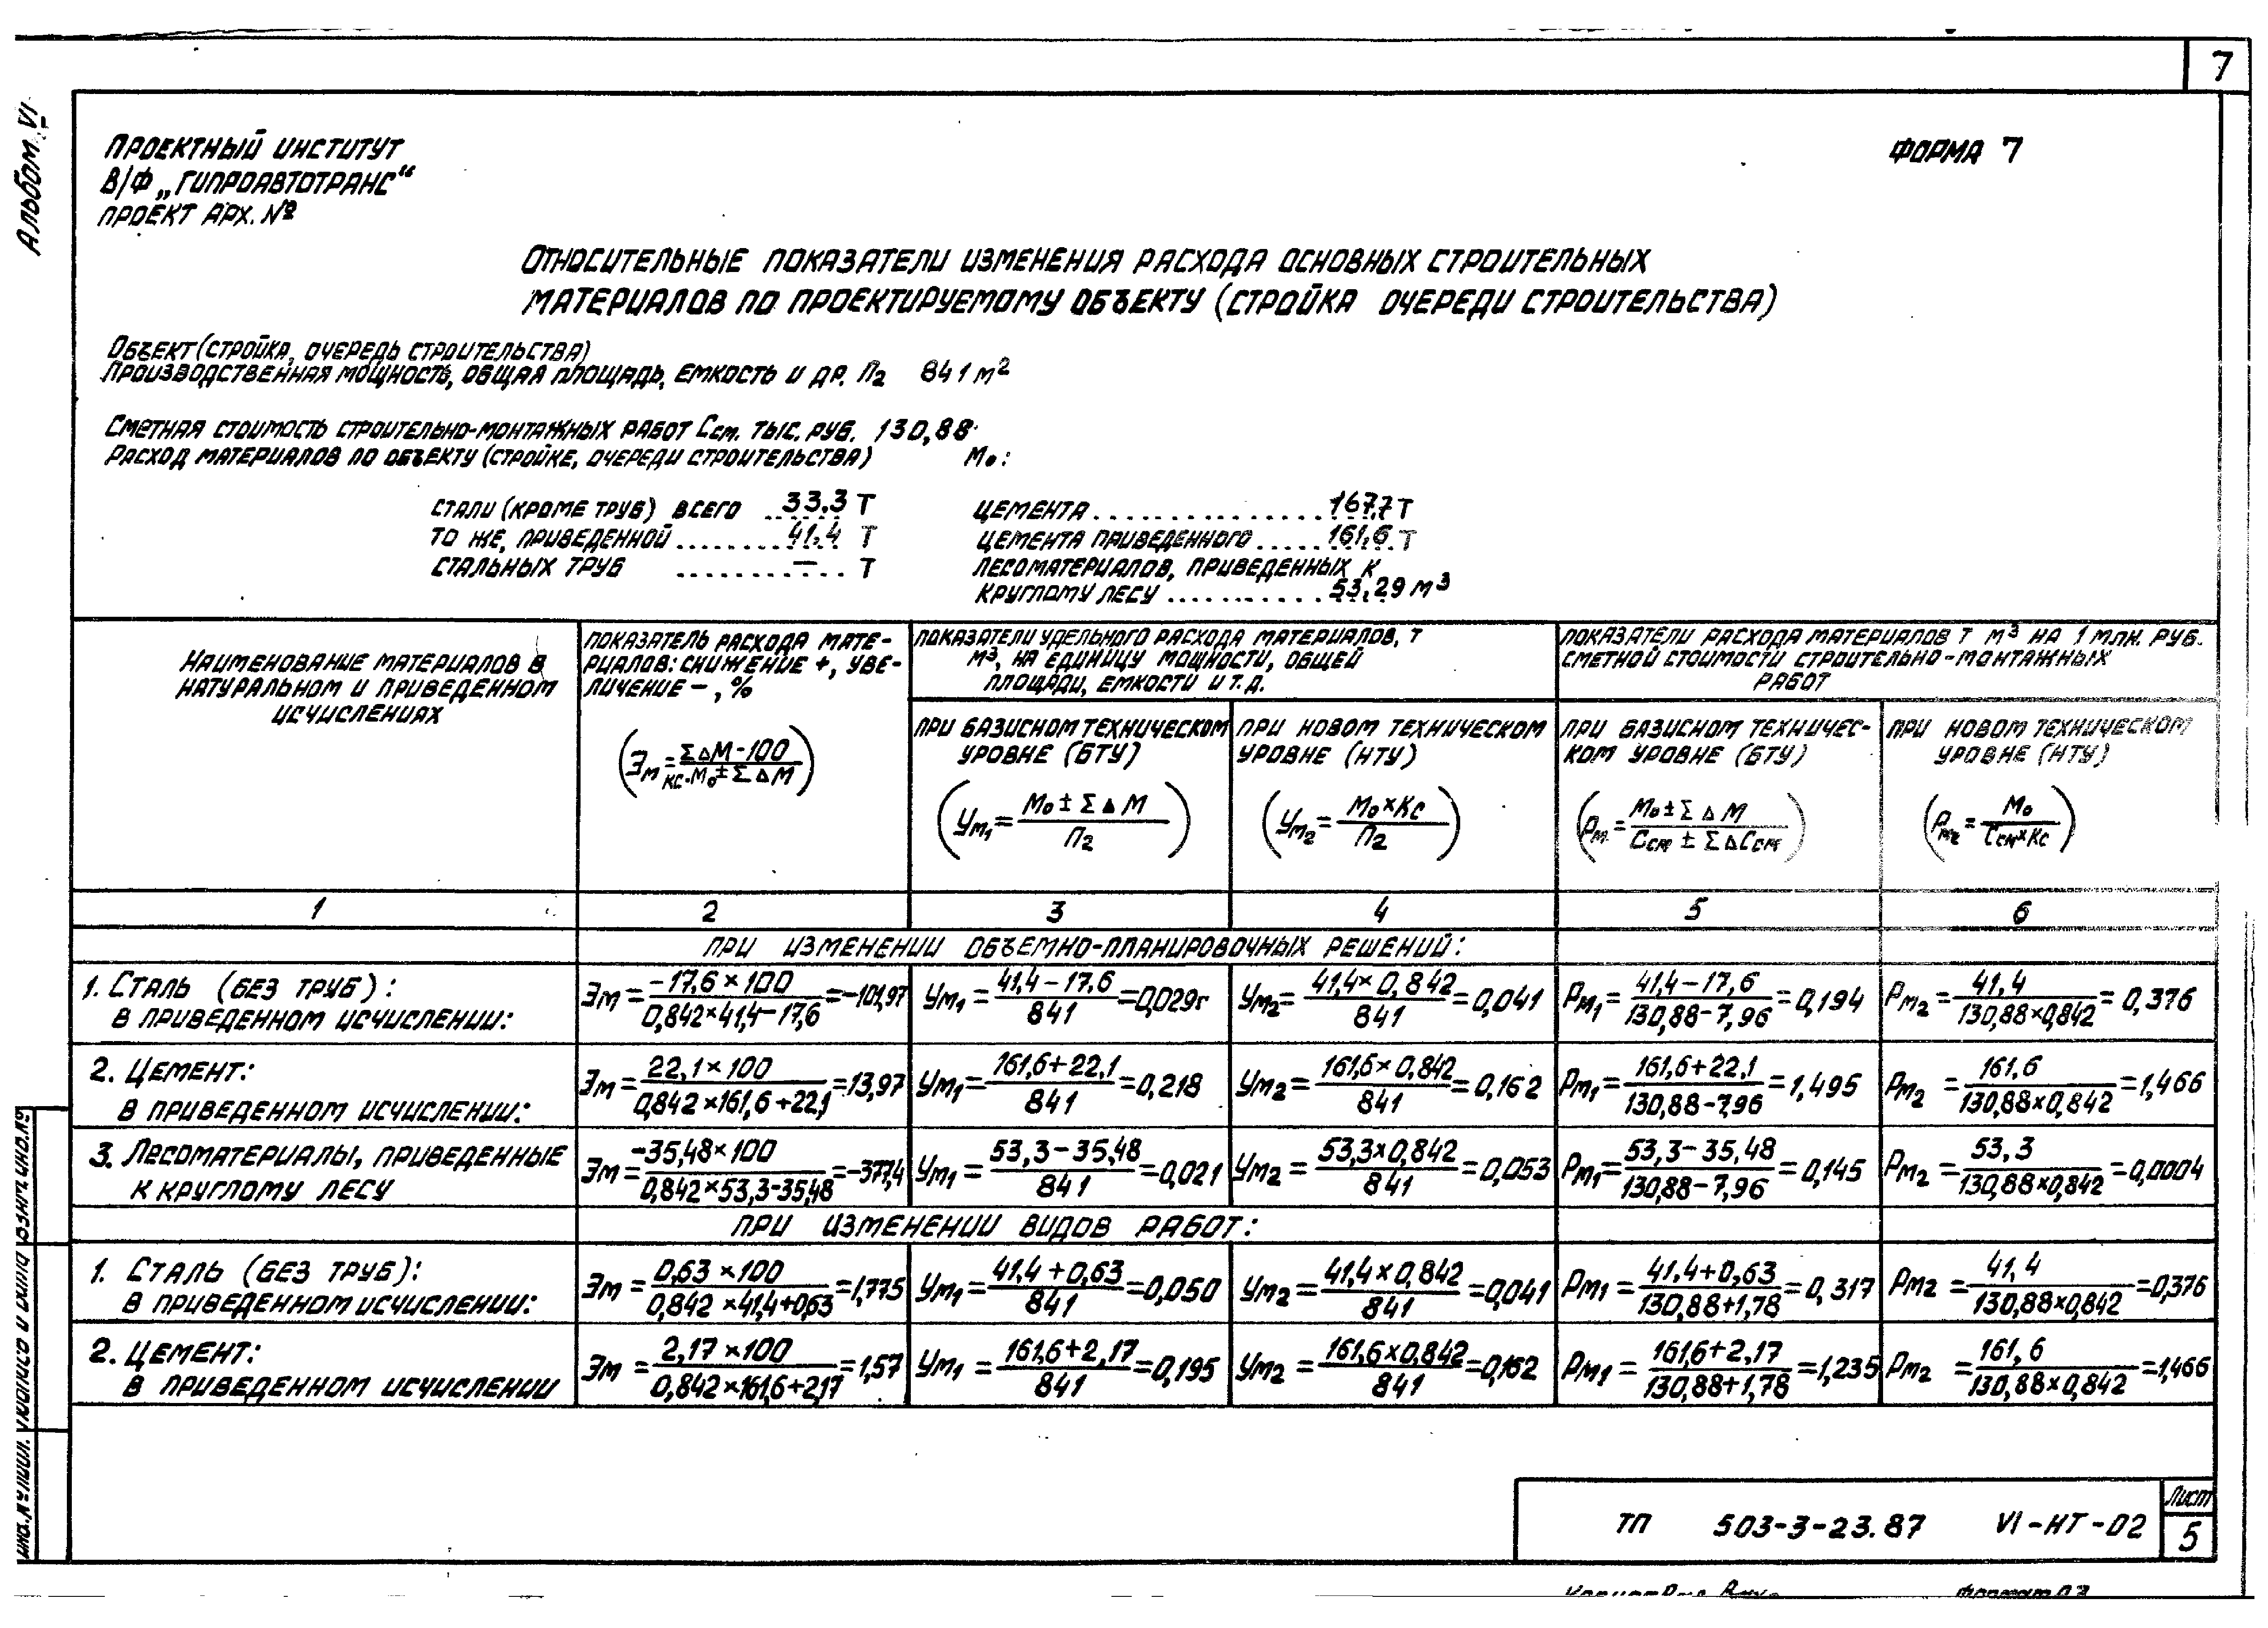 7
Альбом VI
ПРОЕКТНЫЙ ИНСТИТУТ
В/Ф „ГИПРОАВТОТРАНС“
ПРОЕКТ АРХ. №
ФОРМА 7
ОТНОСИТЕЛЬНЫЕ ПОКАЗАТЕЛИ ИЗМЕНЕНИЯ РАСХОДА ОСНОВНЫХ СТРОИТЕЛЬНЫХ
МАТЕРИАЛОВ ПО ПРОЕКТИРУЕМОМУ ОБЪЕКТУ (СТРОЙКА ОЧЕРЕДИ СТРОИТЕЛЬСТВА)
ОБЪЕКТ (СТРОЙКА, ОЧЕРЕДЬ СТРОИТЕЛЬСТВА)
ПРОИЗВОДСТВЕННАЯ МОЩНОСТЬ, ОБЩАЯ ПЛОЩАДЬ, ЕМКОСТЬ И ДР. П2 841 м²
СМЕТНАЯ СТОИМОСТЬ СТРОИТЕЛЬНО-МОНТАЖНЫХ РАБОТ Ссм. ТЫС. РУБ. 130,88
РАСХОД МАТЕРИАЛОВ ПО ОБЪЕКТУ (СТРОЙКЕ, ОЧЕРЕДИ СТРОИТЕЛЬСТВА) Мо:
СТАЛИ (КРОМЕ ТРУБ) ВСЕГО ..33.3 Т
ТО ЖЕ, ПРИВЕДЕННОЙ ........41.4 Т
СТАЛЬНЫХ ТРУБ ........—... Т
ЦЕМЕНТА ................167,7 Т
ЦЕМЕНТА ПРИВЕДЕННОГО .....161,6 Т
ЛЕСОМАТЕРИАЛОВ, ПРИВЕДЕННЫХ К
КРУГЛОМУ ЛЕСУ ............53,29 м³
НАИМЕНОВАНИЕ МАТЕРИАЛОВ В
НАТУРАЛЬНОМ И ПРИВЕДЕННОМ
ИСЧИСЛЕНИЯХ
ПОКАЗАТЕЛЬ РАСХОДА МАТЕ-
РИАЛОВ: СНИЖЕНИЕ +, УВЕ-
ЛИЧЕНИЕ – , %
(Эм = ΣΔМ-100 / КС·Мо ± ΣΔМ)
ПОКАЗАТЕЛИ УДЕЛЬНОГО РАСХОДА МАТЕРИАЛОВ, Т
М³, НА ЕДИНИЦУ МОЩНОСТИ, ОБЩЕЙ
ПЛОЩАДИ, ЕМКОСТИ И Т.Д.
ПРИ БАЗИСНОМ ТЕХНИЧЕСКОМ
УРОВНЕ (БТУ)
(Ум1 = Мо ± ΣΔМ / П2)
ПРИ НОВОМ ТЕХНИЧЕСКОМ
УРОВНЕ (НТУ)
(Ум2 = Мо×Кс / П2)
ПОКАЗАТЕЛИ РАСХОДА МАТЕРИАЛОВ Т М³ НА 1 МЛН. РУБ.
СМЕТНОЙ СТОИМОСТИ СТРОИТЕЛЬНО-МОНТАЖНЫХ
РАБОТ
ПРИ БАЗИСНОМ ТЕХНИЧЕС-
КОМ УРОВНЕ (БТУ)
(Рм. = Мо ± ΣΔМ / Ссм ± ΣΔСсм)
ПРИ НОВОМ ТЕХНИЧЕСКОМ
УРОВНЕ (НТУ)
(Рм2 = Мо / Ссм×Кс)
1 2 3 4 5 6
ПРИ ИЗМЕНЕНИИ ОБЪЕМНО-ПЛАНИРОВОЧНЫХ РЕШЕНИЙ:
1. СТАЛЬ (БЕЗ ТРУБ):
В ПРИВЕДЕННОМ ИСЧИСЛЕНИИ:
Эм = -17,6×100 / 0,842×41,4-17,6 = -101,97
Ум1 = 41,4-17,6 / 841 = 0,029г
Ум2 = 41,4×0,842 / 841 = 0,041
Рм1 = 41,4-17,6 / 130,88-7,96 = 0,194
Рм2 = 41,4 / 130,88×0,842 = 0,376
2. ЦЕМЕНТ:
В ПРИВЕДЕННОМ ИСЧИСЛЕНИИ:
Эм = 22,1×100 / 0,842×161,6+22,1 = 13,97
Ум1 = 161,6+22,1 / 841 = 0,218
Ум2 = 161,6×0,842 / 841 = 0,162
Рм1 = 161,6+22,1 / 130,88-7,96 = 1,495
Рм2 = 161,6 / 130,88×0,842 = 1,466
3. ЛЕСОМАТЕРИАЛЫ, ПРИВЕДЕННЫЕ
К КРУГЛОМУ ЛЕСУ
Эм = -35,48×100 / 0,842×53,3-35,48 = -377,4
Ум1 = 53,3-35,48 / 841 = 0,021
Ум2 = 53,3×0,842 / 841 = 0,053
Рм1 = 53,3-35,48 / 130,88-7,96 = 0,145
Рм2 = 53,3 / 130,88×0,842 = 0,0004
ПРИ ИЗМЕНЕНИИ ВИДОВ РАБОТ:
1. СТАЛЬ (БЕЗ ТРУБ):
В ПРИВЕДЕННОМ ИСЧИСЛЕНИИ:
Эм = 0,63×100 / 0,842×41,4+0,63 = 1,775
Ум1 = 41,4+0,63 / 841 = 0,050
Ум2 = 41,4×0,842 / 841 = 0,041
Рм1 = 41,4+0,63 / 130,88+1,78 = 0,317
Рм2 = 41,4 / 130,88×0,842 = 0,376
2. ЦЕМЕНТ:
В ПРИВЕДЕННОМ ИСЧИСЛЕНИИ
Эм = 2,17×100 / 0,842×161,6+2,17 = 1,57
Ум1 = 161,6+2,17 / 841 = 0,195
Ум2 = 161,6×0,842 / 841 = 0,162
Рм1 = 161,6+2,17 / 130,88+1,78 = 1,235
Рм2 = 161,6 / 130,88×0,842 = 1,466
ТП 503-3-23.87 VI-НТ-02
Лист
5